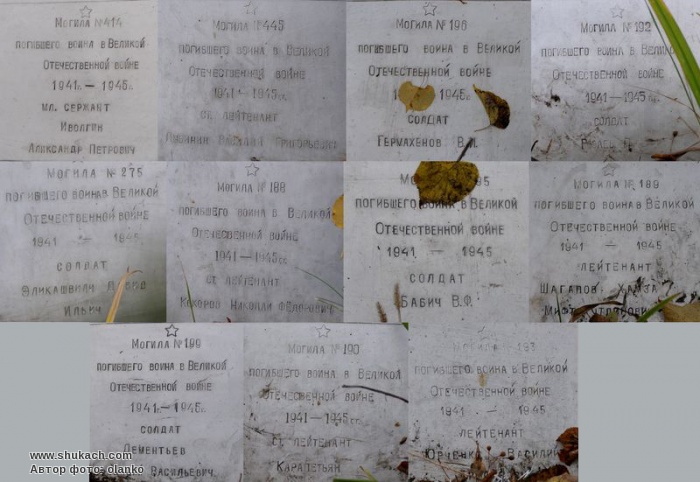 Могила № 414
погибшего воина в Великой
Отечественной войне
1941г. — 1945г.
мл. сержант
Иволгин
Александр Петрович
Могила № 445
погибшего воина в Великой
Отечественной войне
1941 — 1945гг.
ст. лейтенант
Григорьевич
Могила № 196
погибшего воина в Великой
Отечественной войне
1945г.
солдат
Гермахенов
Могила № 192
погибшего воина в Великой
Отечественной войне
1941 — 1945гг.
солдат
Могила № 275
погибшего воина в Великой
Отечественной войне
1941 — 1945
солдат
Яликашвили
Ильич
Могила № 188
погибшего воина в Великой
Отечественной войне
1941 — 1945гг.
ст. лейтенант
Кокоров Николай Фёдорович
95
погибшего воина в Великой
Отечественной войне
1941 — 1945
солдат
Бабич В.Ф.
Могила № 189
погибшего воина в Великой
Отечественной войне
1941 — 1945г.
лейтенант
Шагапов Хамза
Могила № 199
погибшего воина в Великой
Отечественной войне
1941г. — 1945г.
солдат
Дементьев
Васильевич
Могила № 190
погибшего воина в Великой
Отечественной войне
1941 — 1945гг.
ст. лейтенант
Карапетьян
Могила № 193
погибшего воина в Великой
Отечественной войне
1941 — 1945
лейтенант
Юрченко Василий
www.shukach.com
Автор фото: dlanko